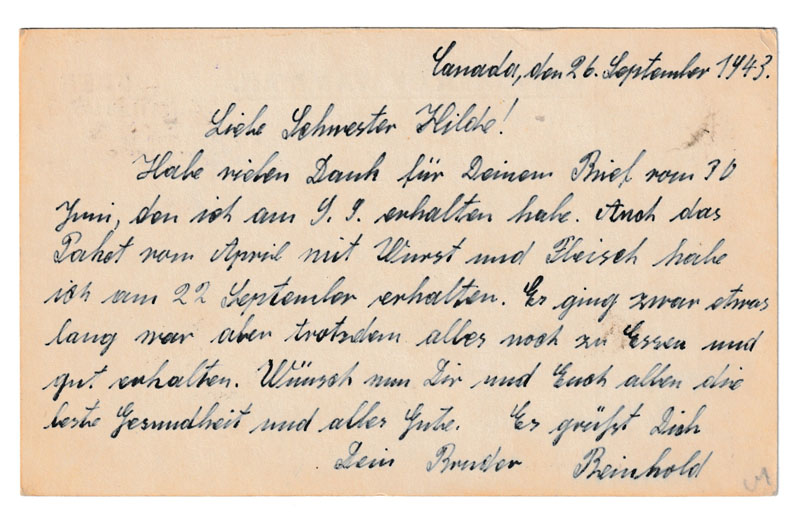 Canada, den 26. September 1943.
Liebe Schwester Hilde!
Habe vielen Dank für Deinem Brief vom 30
Juni, den ich am 9. 9. erhalten habe. Auch das
Paket vom April mit Wurst und Fleisch habe
ich am 22 September erhalten. Es ging zwar etwas
lang war aber trotzdem alles noch zu Essen und
gut erhalten. Wünsch nun Dir und Euch allen die
beste Gesundheit und alles Gute. Es grüßt Dich
Dein Bruder Reinhold